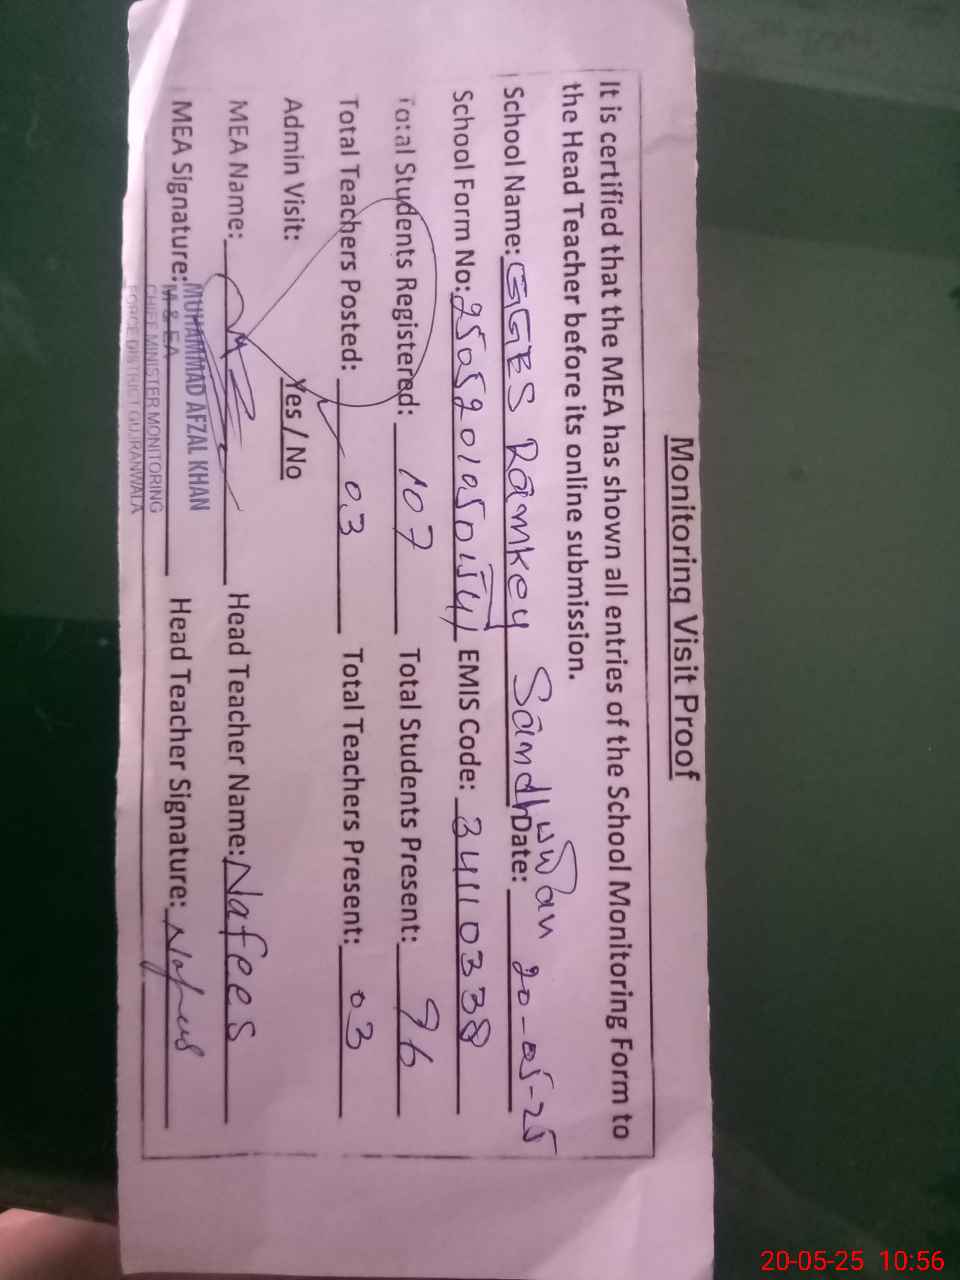 Monitoring Visit Proof
It is certified that the MEA has shown all entries of the School Monitoring Form to
the Head Teacher before its online submission.
School Name: GGES Ramkey Sandhwan Date: 20-05-25
School Form No: EMIS Code: 34110338
Total Students Registered: 107 Total Students Present: 96
Total Teachers Posted: 03 Total Teachers Present: 03
Admin Visit: Yes / No
MEA Name: Head Teacher Name: Nafees
MEA Signature: Head Teacher Signature: Nafees
MUHAMMAD AFZAL KHAN
M & EA
CHIEF MINISTER MONITORING
FORCE DISTRICT GUJRANWALA
20-05-25 10:56